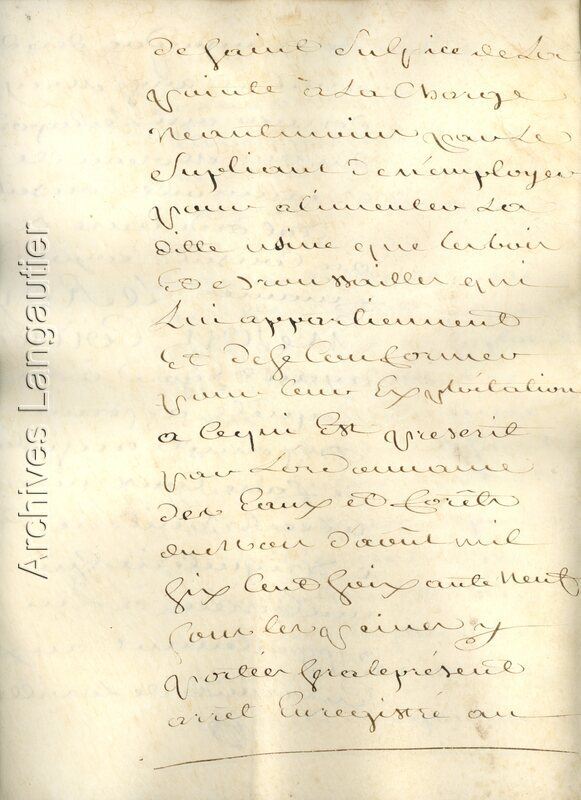 de Saint Sulpice de La
pointe a La Charge
Neantmoins par Le
Supliant de n'employer
pour alimenter La
ditte usine que les bois
Et broussailles qui
Lui appartiennent
Et de se Conformer
pour leur Exploitation
a Ce qui Est prescrit
par L'ordonnance
des Eaux et forêts
du mois d'aout mil
six Cent soixante Neuf
sous les peines y
portées sera le présent
arret Enregistré au
Archives Langautier